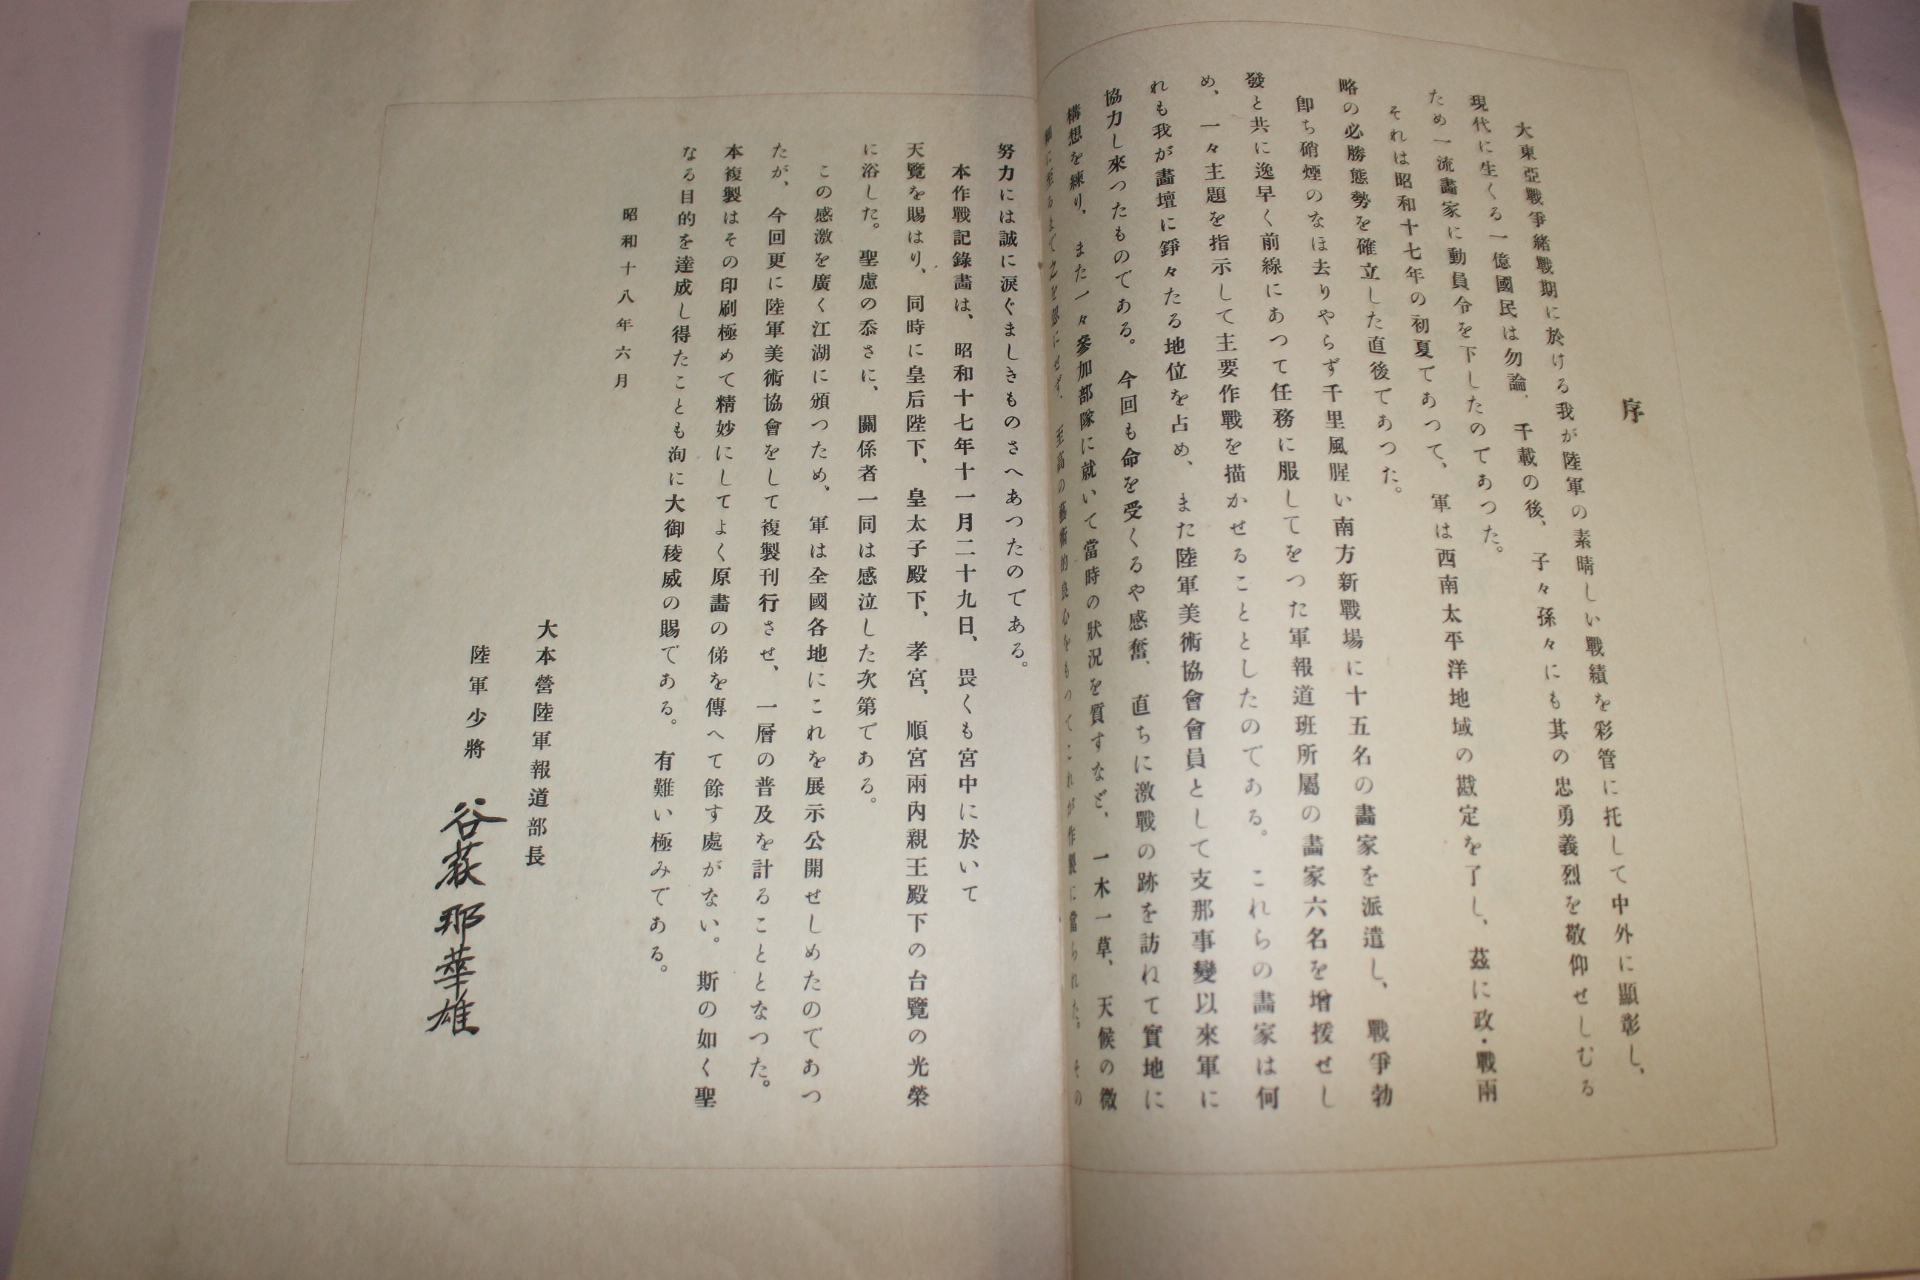 序
大東亞戰爭緖戰期に於ける我が陸軍の素晴しい戰績を彩管に托して中外に顯彰し、
現代に生くる一億國民は勿論、千載の後、子々孫々にも其の忠勇義烈を敬仰せしむる
ため一流畵家に動員令を下したのてあつた。
それは昭和十七年の初夏てあつて、軍は西南太平洋地域の戡定を了し、茲に政・戰兩
略の必勝態勢を確立した直後てあつた。
卽ち硝煙のなほ去りやらず千里風腥い南方新戰場に十五名の畵家を派遣し、戰爭勃
發と共に逸早く前線にあつて任務に服してをつた軍報道班所屬の畵家六名を增援せし
め、一々主題を指示して主要作戰を描かせることとしたのてある。これらの畵家は何
れも我が畵壇に錚々たる地位を占め、また陸軍美術協會會員として支那事變以來軍に
協力し來つたものてある。今回も命を受くるや感奮、直ちに激戰の跡を訪ねて實地に
構想を練り、また一々參加部隊に就いて當時の狀況を質すなど、一木一草、天候の微
に至るまて之を忽にせず、至高の藝術的良心をもつてこれが作製に當られた。その
努力には誠に淚ぐましきものさへあつたのてある。
本作戰記錄畵は、昭和十七年十一月二十九日、畏くも宮中に於いて
天覽を賜はり、同時に皇后陛下、皇太子殿下、孝宮、順宮兩內親王殿下の台覽の光榮
に浴した。聖慮の忝さに、關係者一同は感泣した次第てある。
この感激を廣く江湖に頒つため、軍は全國各地にこれを展示公開せしめたのてあつ
たが、今回更に陸軍美術協會をして複製刊行させ、一層の普及を計ることとなつた。
本複製はその印刷極めて精妙にしてよく原畵の俤を傳へて餘す處がない。斯の如く聖
なる目的を達成し得たことも洵に大御稜威の賜てある。有難い極みてある。
昭和十八年六月
大本營陸軍報道部長
陸軍少將 谷萩那華雄